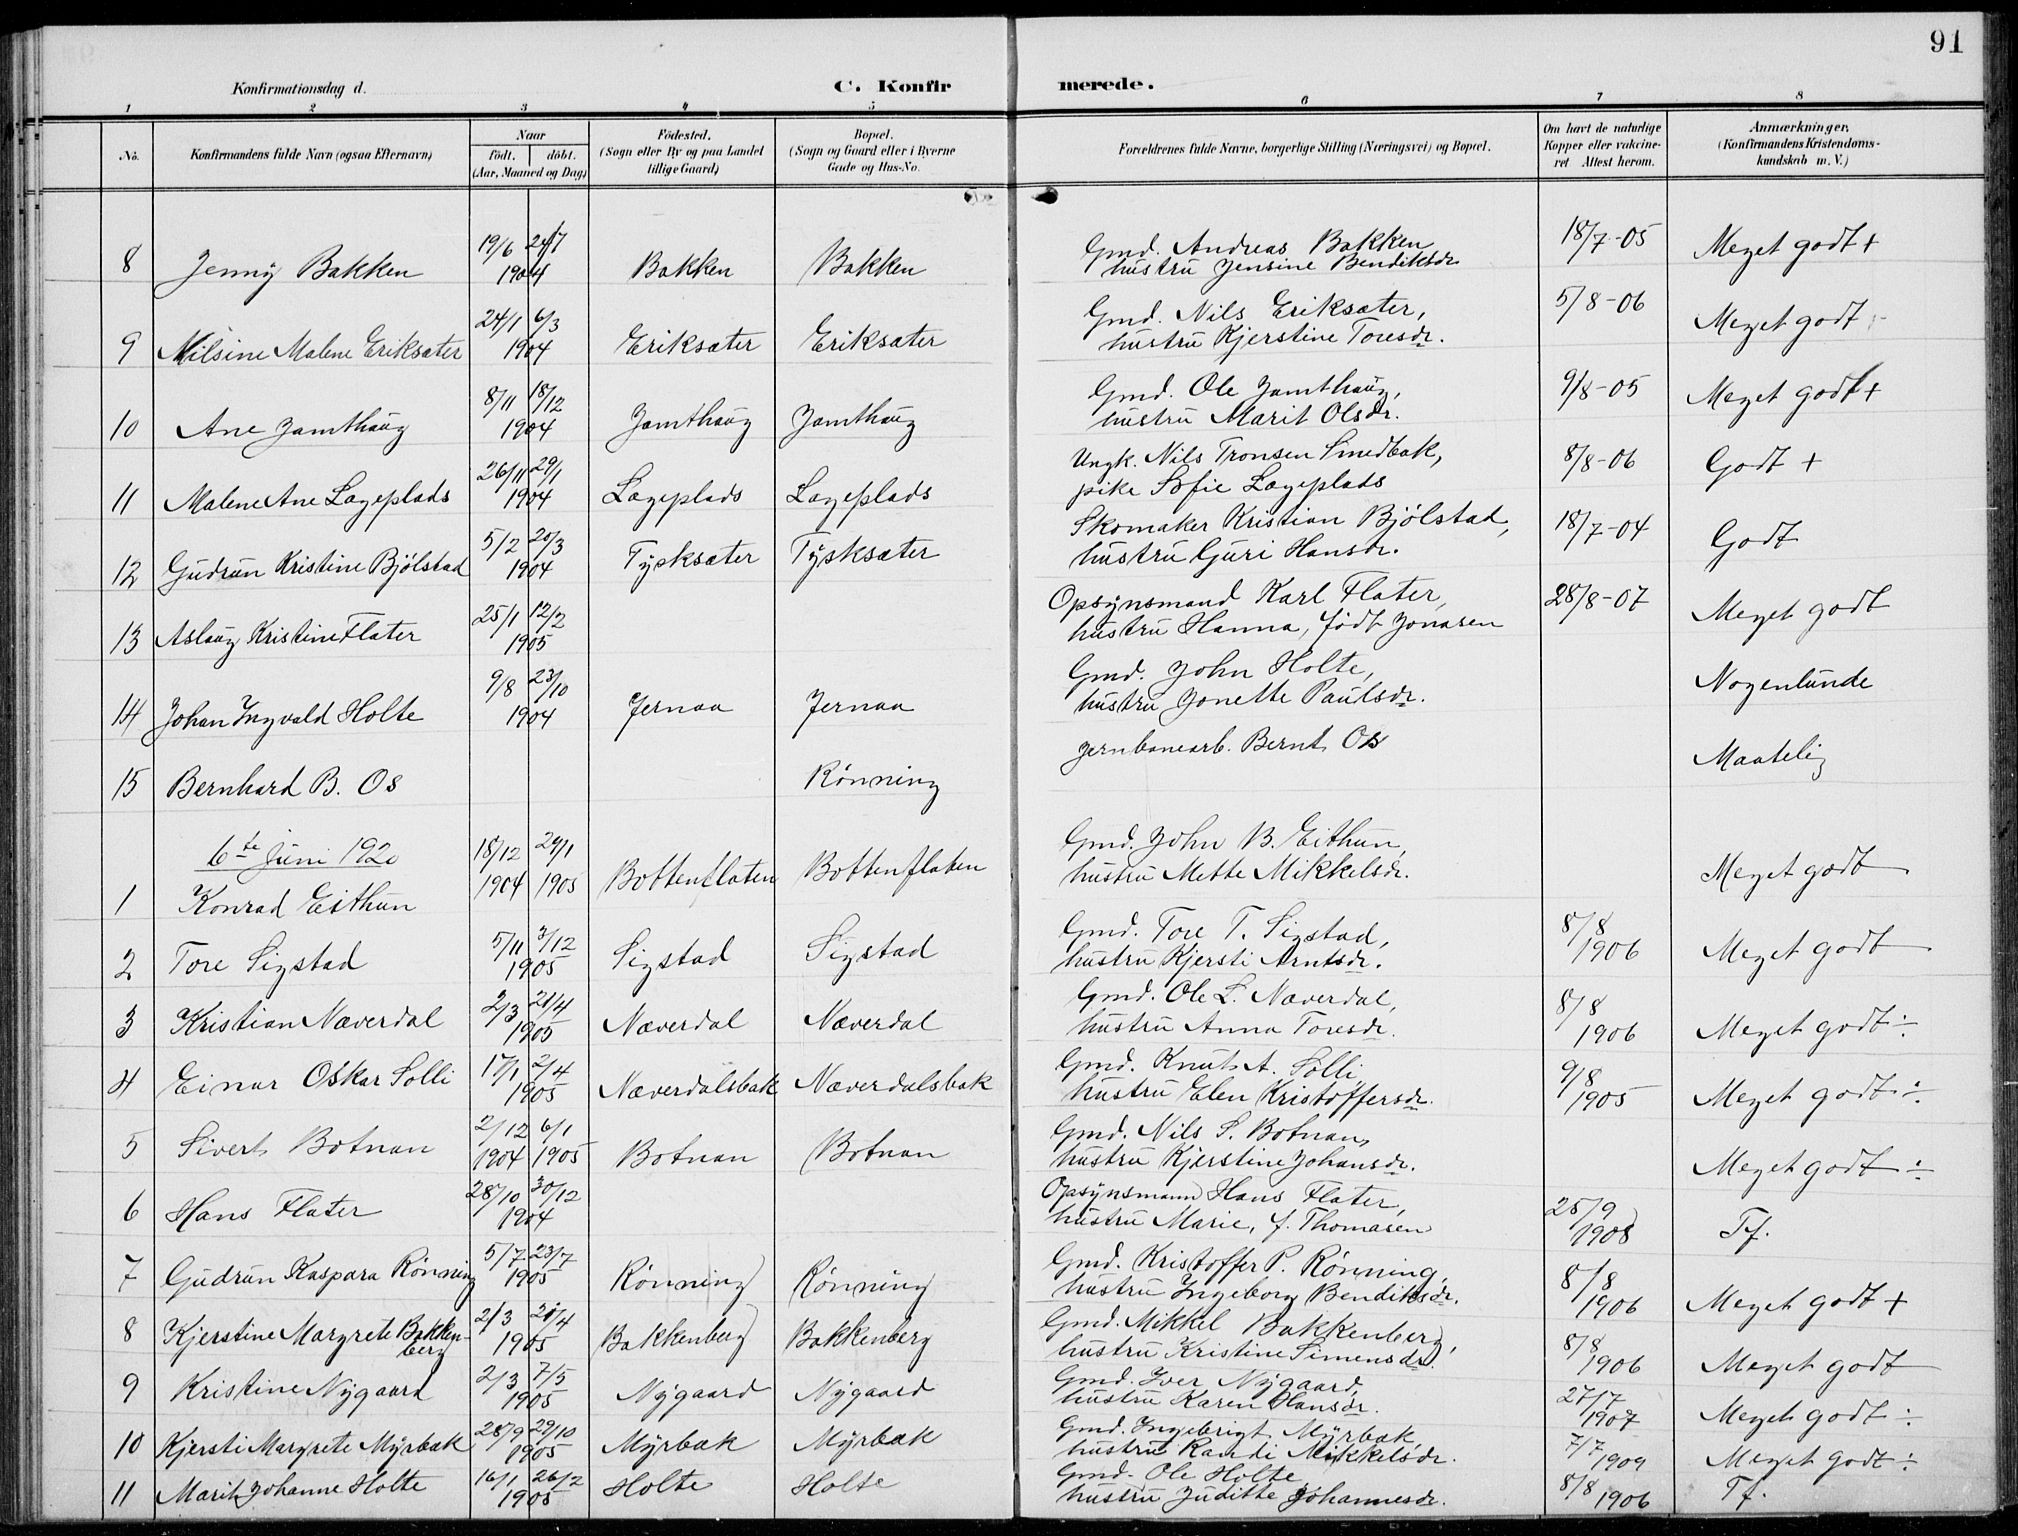 91
Konfirmationsdag d.
C. Konfirmerede.
1 2 3 4 5 6 7 8
No.
Konfirmandens fulde Navn (ogsaa Efternavn)
Naar
födt. döbt.
(Aar, Maaned og Dag)
Födested.
(Sogn eller By og paa Landet
tillige Gaard)
Bopæl.
(Sogn og Gaard eller i Byerne
Gade og Hus-No.
Forældrenes fulde Navne, borgerlige Stilling (Næringsvei) og Bopæl.
Om havt de naturlige
Kopper eller vakcine-
ret Attest herom.
Anmærkninger.
(Konfirmandens Kristendoms-
kundskab m. V.)
8 Jenny Bakken 19/6 24/7 1904 Bakken Bakken Gmd. Andreas Bakken 18/7-05 Meget godt +
hustru Jensine Bendiksdr
9 Nilsine Malene Eriksæter 24/1 6/3 1904 Eriksæter Eriksæter Gmd. Nils Eriksæter, 5/8-06 Meget godt
hustru Kjerstine Toresdr.
10 Ane Jamthaug 8/11 18/12 1904 Jamthaug Jamthaug Gmd. Ole Jamthaug, 9/8-05 Meget godt +
hustru Marit Olsdr.
11 Malene Ane Lægeplads 26/11 29/1 1904 Lægeplads Lægeplads Ungk. Nils Tronsen Smedbak, 8/8-06 Godt +
pike Sofie Lægeplads
12 Gudrun Kristine Bjölstad 5/2 20/3 1904 Tysksæter Tysksæter Skomaker Kristian Bjölstad, 18/7-04 Godt
hustru Guri Hansdr.
13 Aslaug Kristine Flater 25/1 12/2 1905 Opsynsmand Karl Flater, 28/8-07 Meget godt
hustru Hanna, födt Jonasen
14 Johan Ingvald Holte 9/8 23/10 1904 Jernaa Jernaa Gmd. John Holte, Nogenlunde
hustru Jonette Paulsdr.
15 Bernhard B. Os Rönning Jernbanearb. Bernt Os Maatelig
6te Juni 1920
1 Konrad Eithun 18/12 1904 29/1 1905 Bottenflaten Bottenflaten Gmd. John B. Eithun, Meget godt
hustru Mette Mikkelsdr.
2 Tore Sigstad 5/11 3/12 1905 Sigstad Sigstad Gmd. Tore T. Sigstad, 8/8 1906 Meget godt
hustru Kjersti Arntsdr.
3 Kristian Næverdal 2/3 21/4 1905 Næverdal Næverdal Gmd. Ole L. Næverdal, 8/8 1906 Meget godt ÷
hustru Anna Toresdr.
4 Einar Oskar Solli 17/1 2/4 1905 Næverdalsbak Næverdalsbak Gmd. Knut A. Solli, 9/8 1905 Meget godt ÷
hustru Elen Kristoffersdr.
5 Sivert Botnan 2/12 1904 6/1 1905 Botnan Botnan Gmd. Nils S. Botnan, Meget godt ÷
hustru Kjerstine Johansdr.
6 Hans Flater 28/10 30/12 1904 Opsynsmann Hans Flater, 25/9 1908 Tf.
hustru Marie, f. Thomasen
7 Gudrun Kaspara Rönning 5/7 23/7 1905 Rönning Rönning Gmd. Kristoffer P. Rönning, 8/8 1906 Meget godt +
hustru Ingeborg Bendiksdr.
8 Kjerstine Margrete Bakken-
berg 2/3 20/4 1905 Bakkenberg Bakkenberg Gmd. Mikkel Bakkenberg, 8/8 1906 Meget godt
hustru Kristine Simensdr.
9 Kristine Nygaard 2/3 7/5 1905 Nygaard Nygaard Gmd. Iver Nygaard, 27/7 1907 Meget godt ÷
hustru Karen Hansdr.
10 Kjersti Margrete Myrbak 28/9 29/10 1905 Myrbak Myrbak Gmd. Ingebrigt Myrbak 7/7 1909 Meget godt ÷
hustru Randi Mikkelsdr.
11 Marit Johanne Holte 16/1 26/2 1905 Holte Holte Gmd. Ole Holte 8/8 1906 Tf.
hustru Juditte Johannesdr.